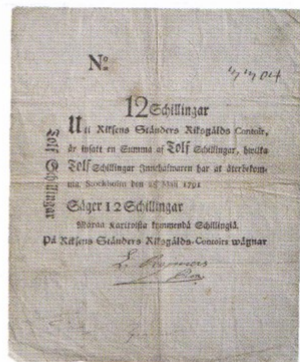 No.
12 Schillingar
Uti Riksens Ständers Riksgälds Contoir,
är insatt en Summa af Tolf Schillingar, hwilka
Tolf Schillingar Innehafwaren har at återbekom-
ma Stockholm den 15 Maii 1791
Säger 12 Schillingar
På Riksens Ständers Riksgälds-Contoirs wägnar
Tolf Schillingar